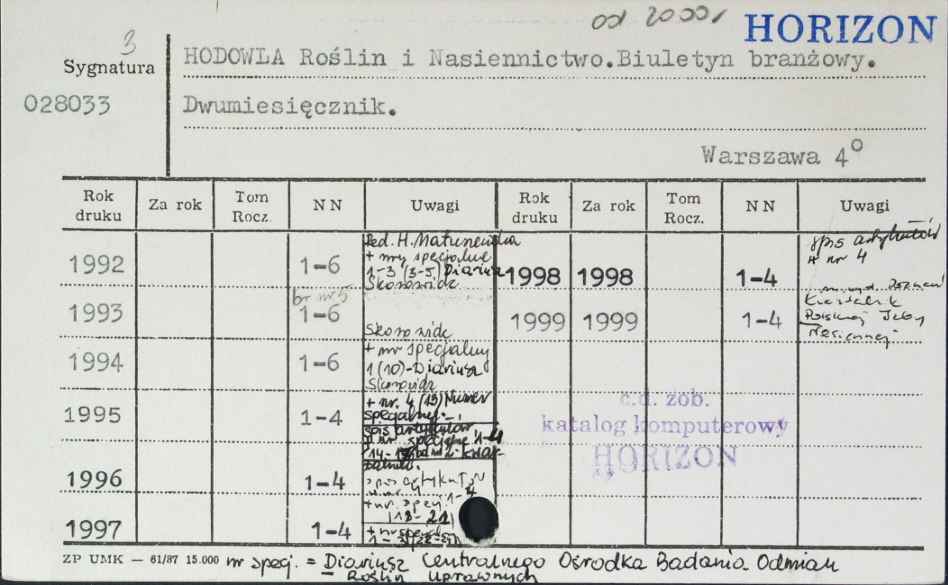 od 2000r
HORIZON
3
Sygnatura
028033
HODOWLA Roślin i Nasiennictwo.Biuletyn branżowy.
Dwumiesięcznik.
Warszawa 4°
Rok druku Za rok Tom Rocz. NN Uwagi Rok druku Za rok Tom Rocz. NN Uwagi
1992 1-6
+ nry specjalne
1-3 (3-5) Diariusz
Skorowidz
1998 1998 1-4 spis artykułów
w nr 4
br nr 5
1993 1-6
Skorowidz
1999 1999 1-4 Kwartalnik
Polskiej Izby
Nasiennej
1994 1-6 + nr specjalny
1(10)-Diariusz
Skorowidz
1995 1-4 + nr. 4 (13) Numer
specjalny.
spis artykułów
1996 1-4
spis artykułów
1997 1-4
+nr. specj. 1-4
(18-21)
c.d. zob.
katalog komputerowy
HORIZON
ZP UMK — 61/87 15.000 nr specj. = Diariusz Centralnego Ośrodka Badania Odmian
Roślin Uprawnych